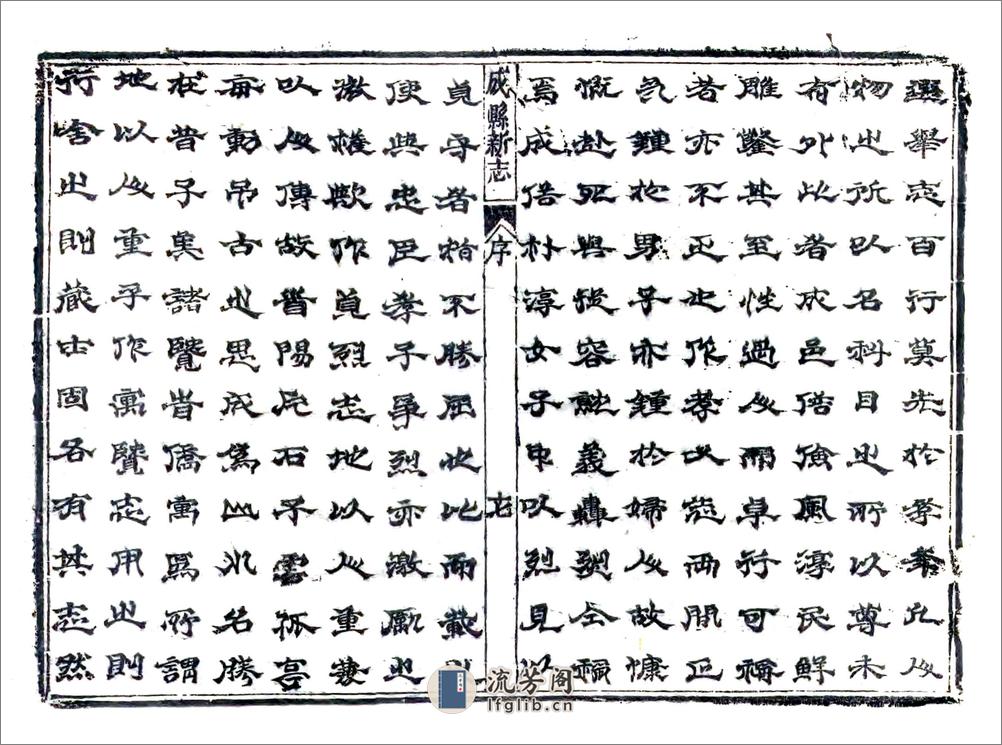 選舉志百行莫先於孝弟凡人
物之所以名科目之所以尊未
有外此者成邑俗儉風淳民鮮
雕鑿其至性過人而卓行可稱
者亦不乏也作孝友志兩間正
氣鍾於男子亦鍾於婦人故慷
慨赴死與從容就義轟烈仝稱
焉成俗朴淳女子中以烈見以
成縣新志 序 七
貞守者指不勝屈也比而載則
便與忠臣孝子爭烈亦激厲之
微權歟作貞烈志地以人重兼
以人傳故首陽片石子雲孤亭
每動弔古之思成爲山水名勝
在昔子美諸賢皆僑寓焉所謂
地以人重乎作寓賢志用之則
行舍之則藏士固各有其志然
流芳阁
lfglib.cn